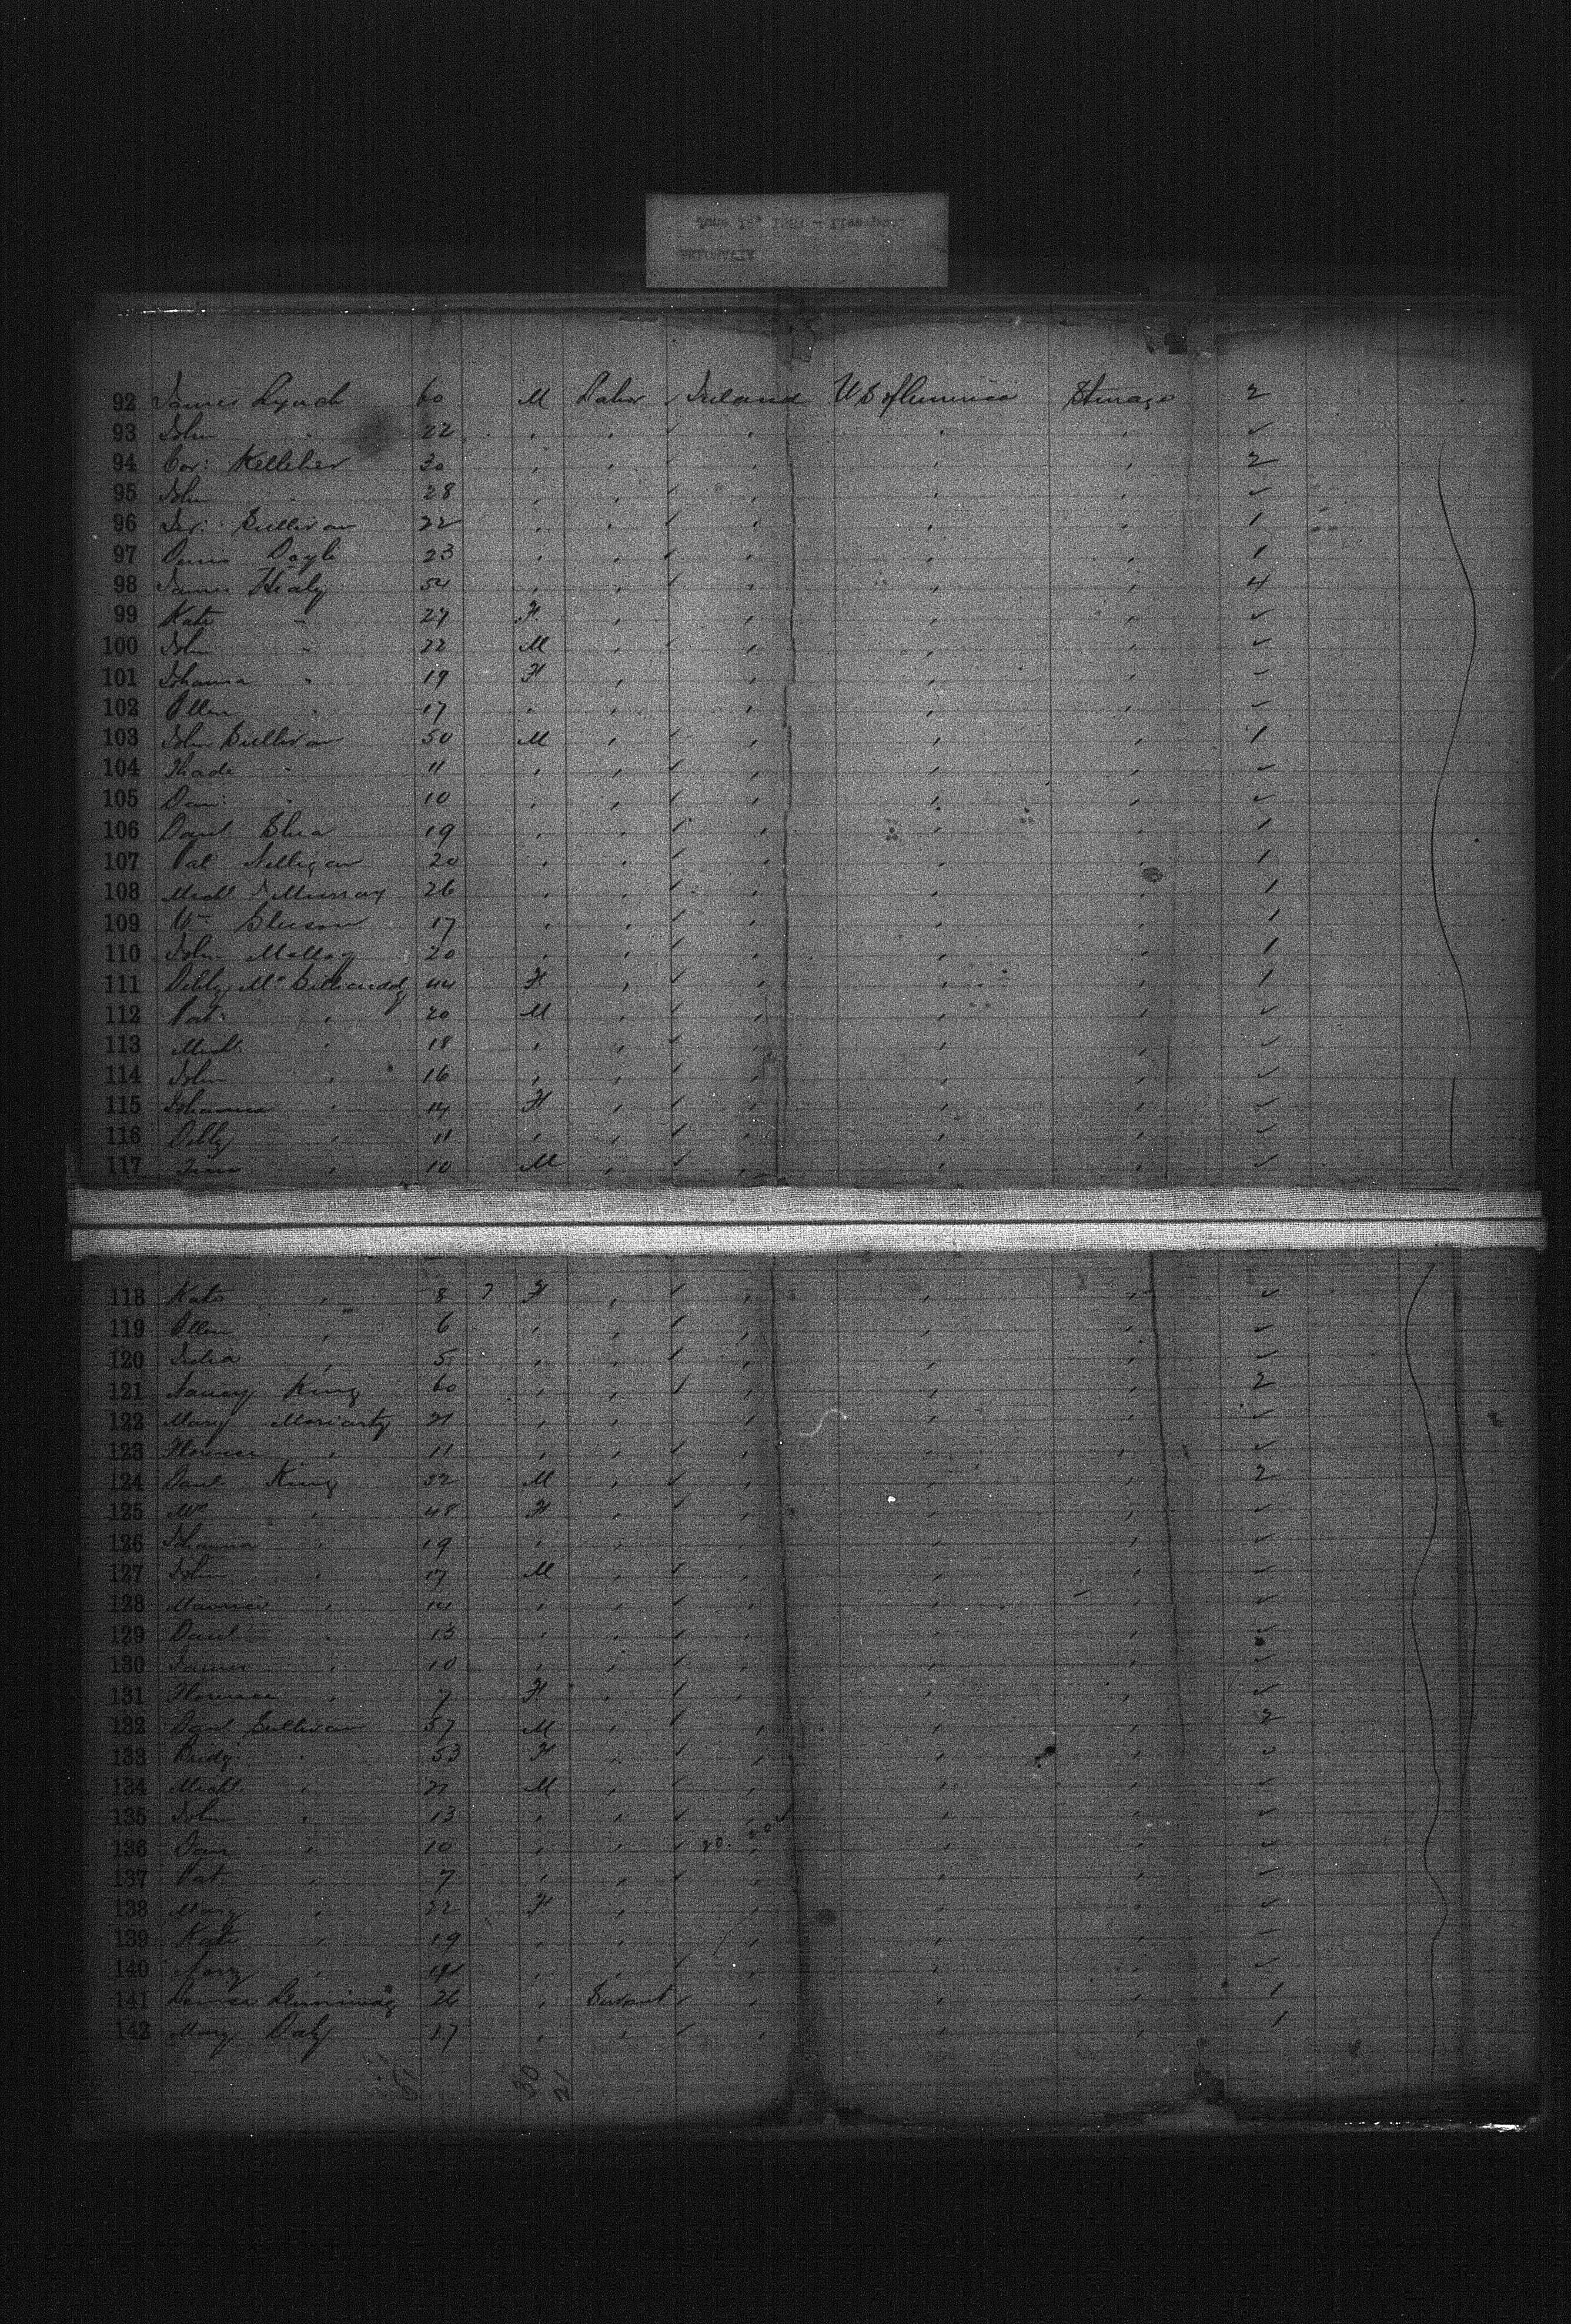 92 James Lynch 60 M Labor ✓ Ireland U S of America Steerage 2
93 John " 22 " " ✓ " " " ✓
94 Cor: Kelleher 30 " " ✓ " " " 2
95 John " 28 " " ✓ " " " ✓
96 Sullivan 22 " " ✓ " " " 1
97 Denis Doyle 23 " " ✓ " " " 1
98 James Healy 54 " " ✓ " " " 4
99 Kate " 27 F " " " " ✓
100 John " 22 M " ✓ " " " ✓
101 Johanna " 19 F " " " " ✓
102 Ellen " 17 " " " " " ✓
103 John Sullivan 50 M " ✓ " " " 1
104 Thade " 11 " " ✓ " " " ✓
105 Dan: " 10 " " ✓ " " " ✓
106 Danl Shea 19 " " ✓ " " " 1
107 Pat Nelligan 20 " " ✓ " " " 1
108 Michl Murray 26 " " ✓ " " " 1
109 Wm Gleeson 17 " " ✓ " " " 1
110 John Malloy 20 " " ✓ " " " 1
111 Debby 44 F " ✓ " " " 1
112 Pat: " 20 M " ✓ " " " ✓
113 Michl " 18 " " ✓ " " " ✓
114 John " 16 " " ✓ " " " ✓
115 Johanna " 14 F " ✓ " " " ✓
116 Debby " 11 " " ✓ " " " ✓
117 Tim " 10 M " ✓ " " " ✓
118 Kate " 8 7 F " ✓ " " " ✓
119 Ellen " 6 " " ✓ " " " ✓
120 Julia " 5 " " ✓ " " " ✓
121 Nancy King 60 " " ✓ " " " 2
122 Mary Moriarty 21 " " " " " ✓
123 Florence " 11 " " ✓ " " " ✓
124 Danl King 52 M " ✓ " " " 2
125 Mrs " 48 F " ✓ " " " ✓
126 Johanna " 19 " " " " " ✓
127 John " 17 M " ✓ " " " ✓
128 Maurice " 14 " " ✓ " " " ✓
129 Danl " 13 " " ✓ " " " ✓
130 James " 10 " " ✓ " " " ✓
131 Florence " 7 F " ✓ " " " ✓
132 Danl Sullivan 57 M " ✓ " " " 2
133 Bridg: " 53 F " ✓ " " " ✓
134 Michl " 21 M " ✓ " " " ✓
135 John " 13 " " ✓ " " " ✓
136 Dan " 10 " " ✓ 20. 20 " " ✓
137 Pat " 7 " " ✓ " " " ✓
138 Mary " 22 F " " " " ✓
139 Kate " 19 " " " " " ✓
140 " " " ✓ " " " ✓
141 24 " Servant ✓ " " " 1
142 Mary Daly 17 " " ✓ " " " 1
51 30 21